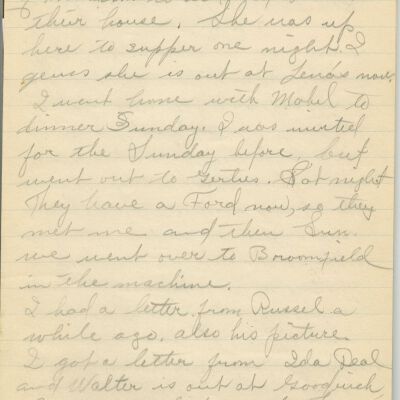 their house. She was up
here to supper one night. I
guess she is out at Lena's now.
I went home with Mabel to
dinner Sunday. I was invited
for the Sunday before, but
went out to Gerties. Sat night
They have a Ford now, so they
met me and then Sun.
we went over to Broomfield
in the machine.
I had a letter from Russel a
while ago. also his picture.
I got a letter from Ida Deal
and Walter is out at Goodrich